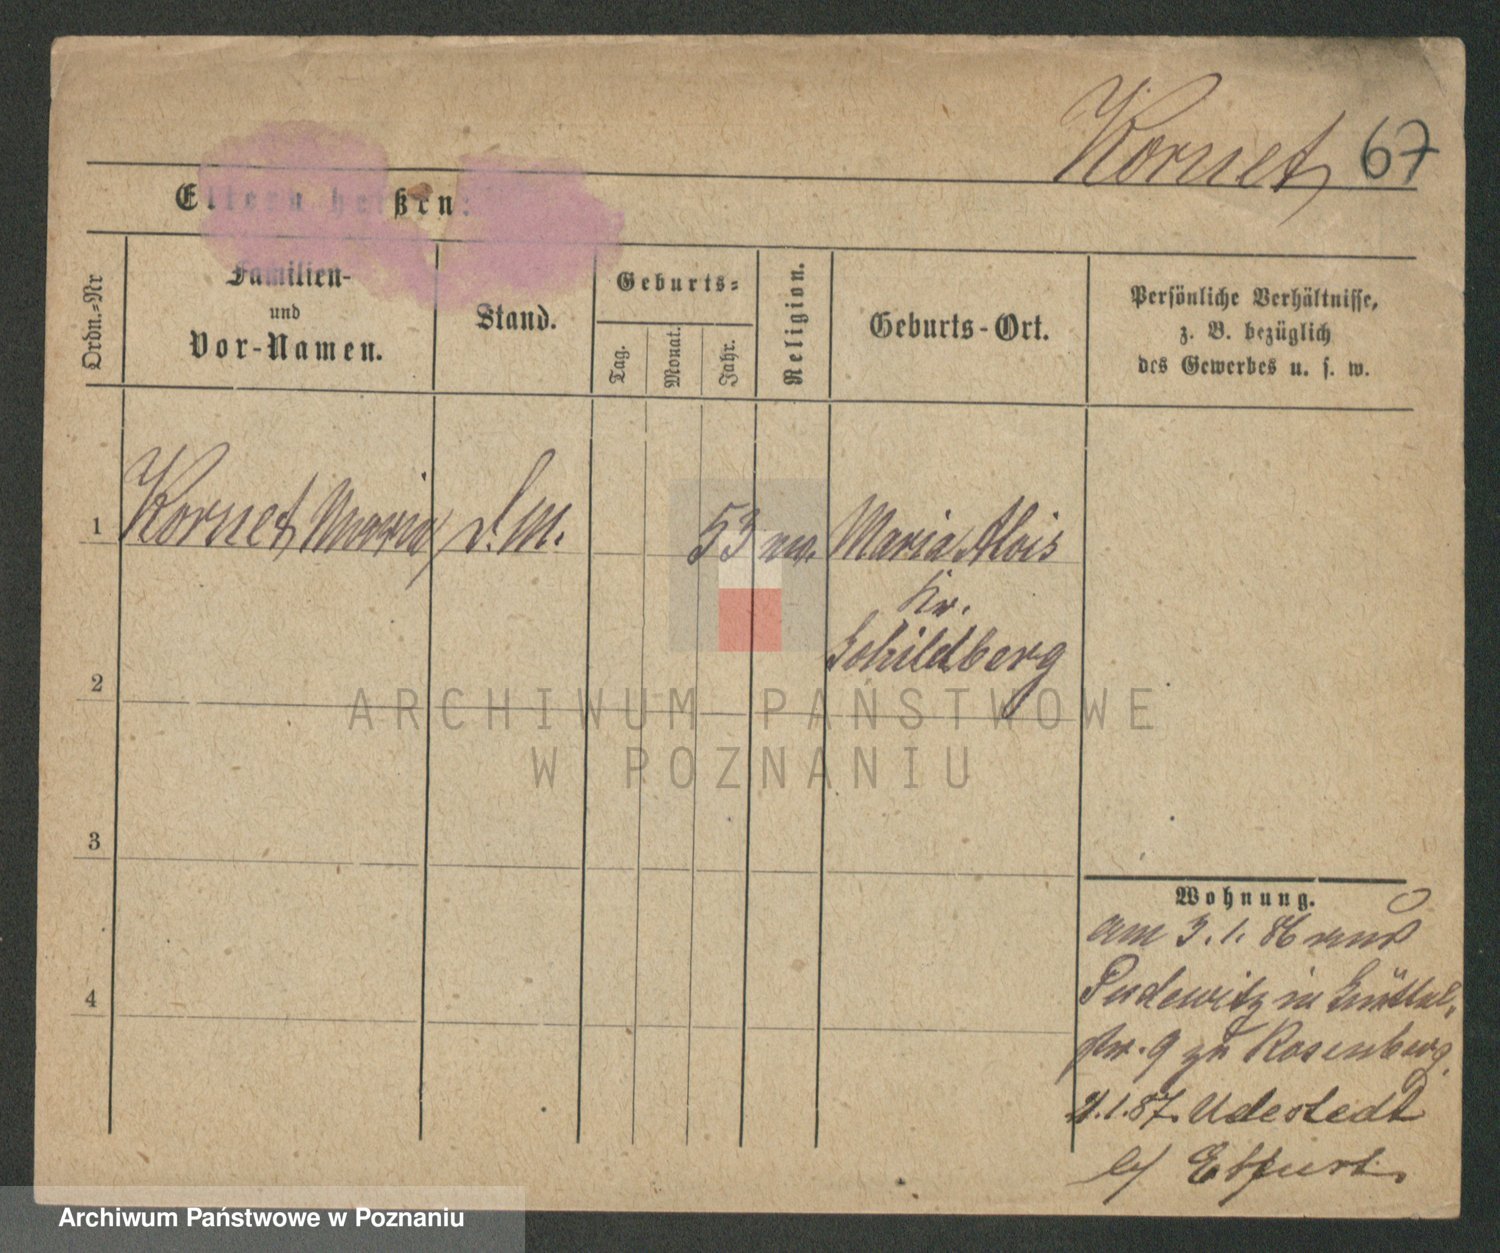 Kornet 67
Eltern heißen:
Ordn.-Nr
Familien-
und
Vor-Namen.
Stand.
Geburts-
Tag.
Monat.
Jahr.
Religion.
Geburts-Ort.
Persönliche Verhältnisse,
z. B. bezüglich
des Gewerbes u. s. w.
1 Kornet Maria d. M. 53 Maria Alois
Kr.
Schildberg
2
3
4
Wohnung.
am 3. 1. 86 aus
Pudewitz in
9 zu Rosenberg
1. 87. Udestedt
b/ Erfurt.
ARCHIWUM PAŃSTWOWE
W POZNANIU
Archiwum Państwowe w Poznaniu